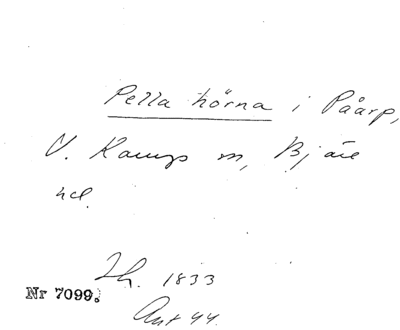 Pella hörna i Påarp,
V. Karups m, Bjäre
hd.
Lh. 1833
Nr 7099.
Ant 44.